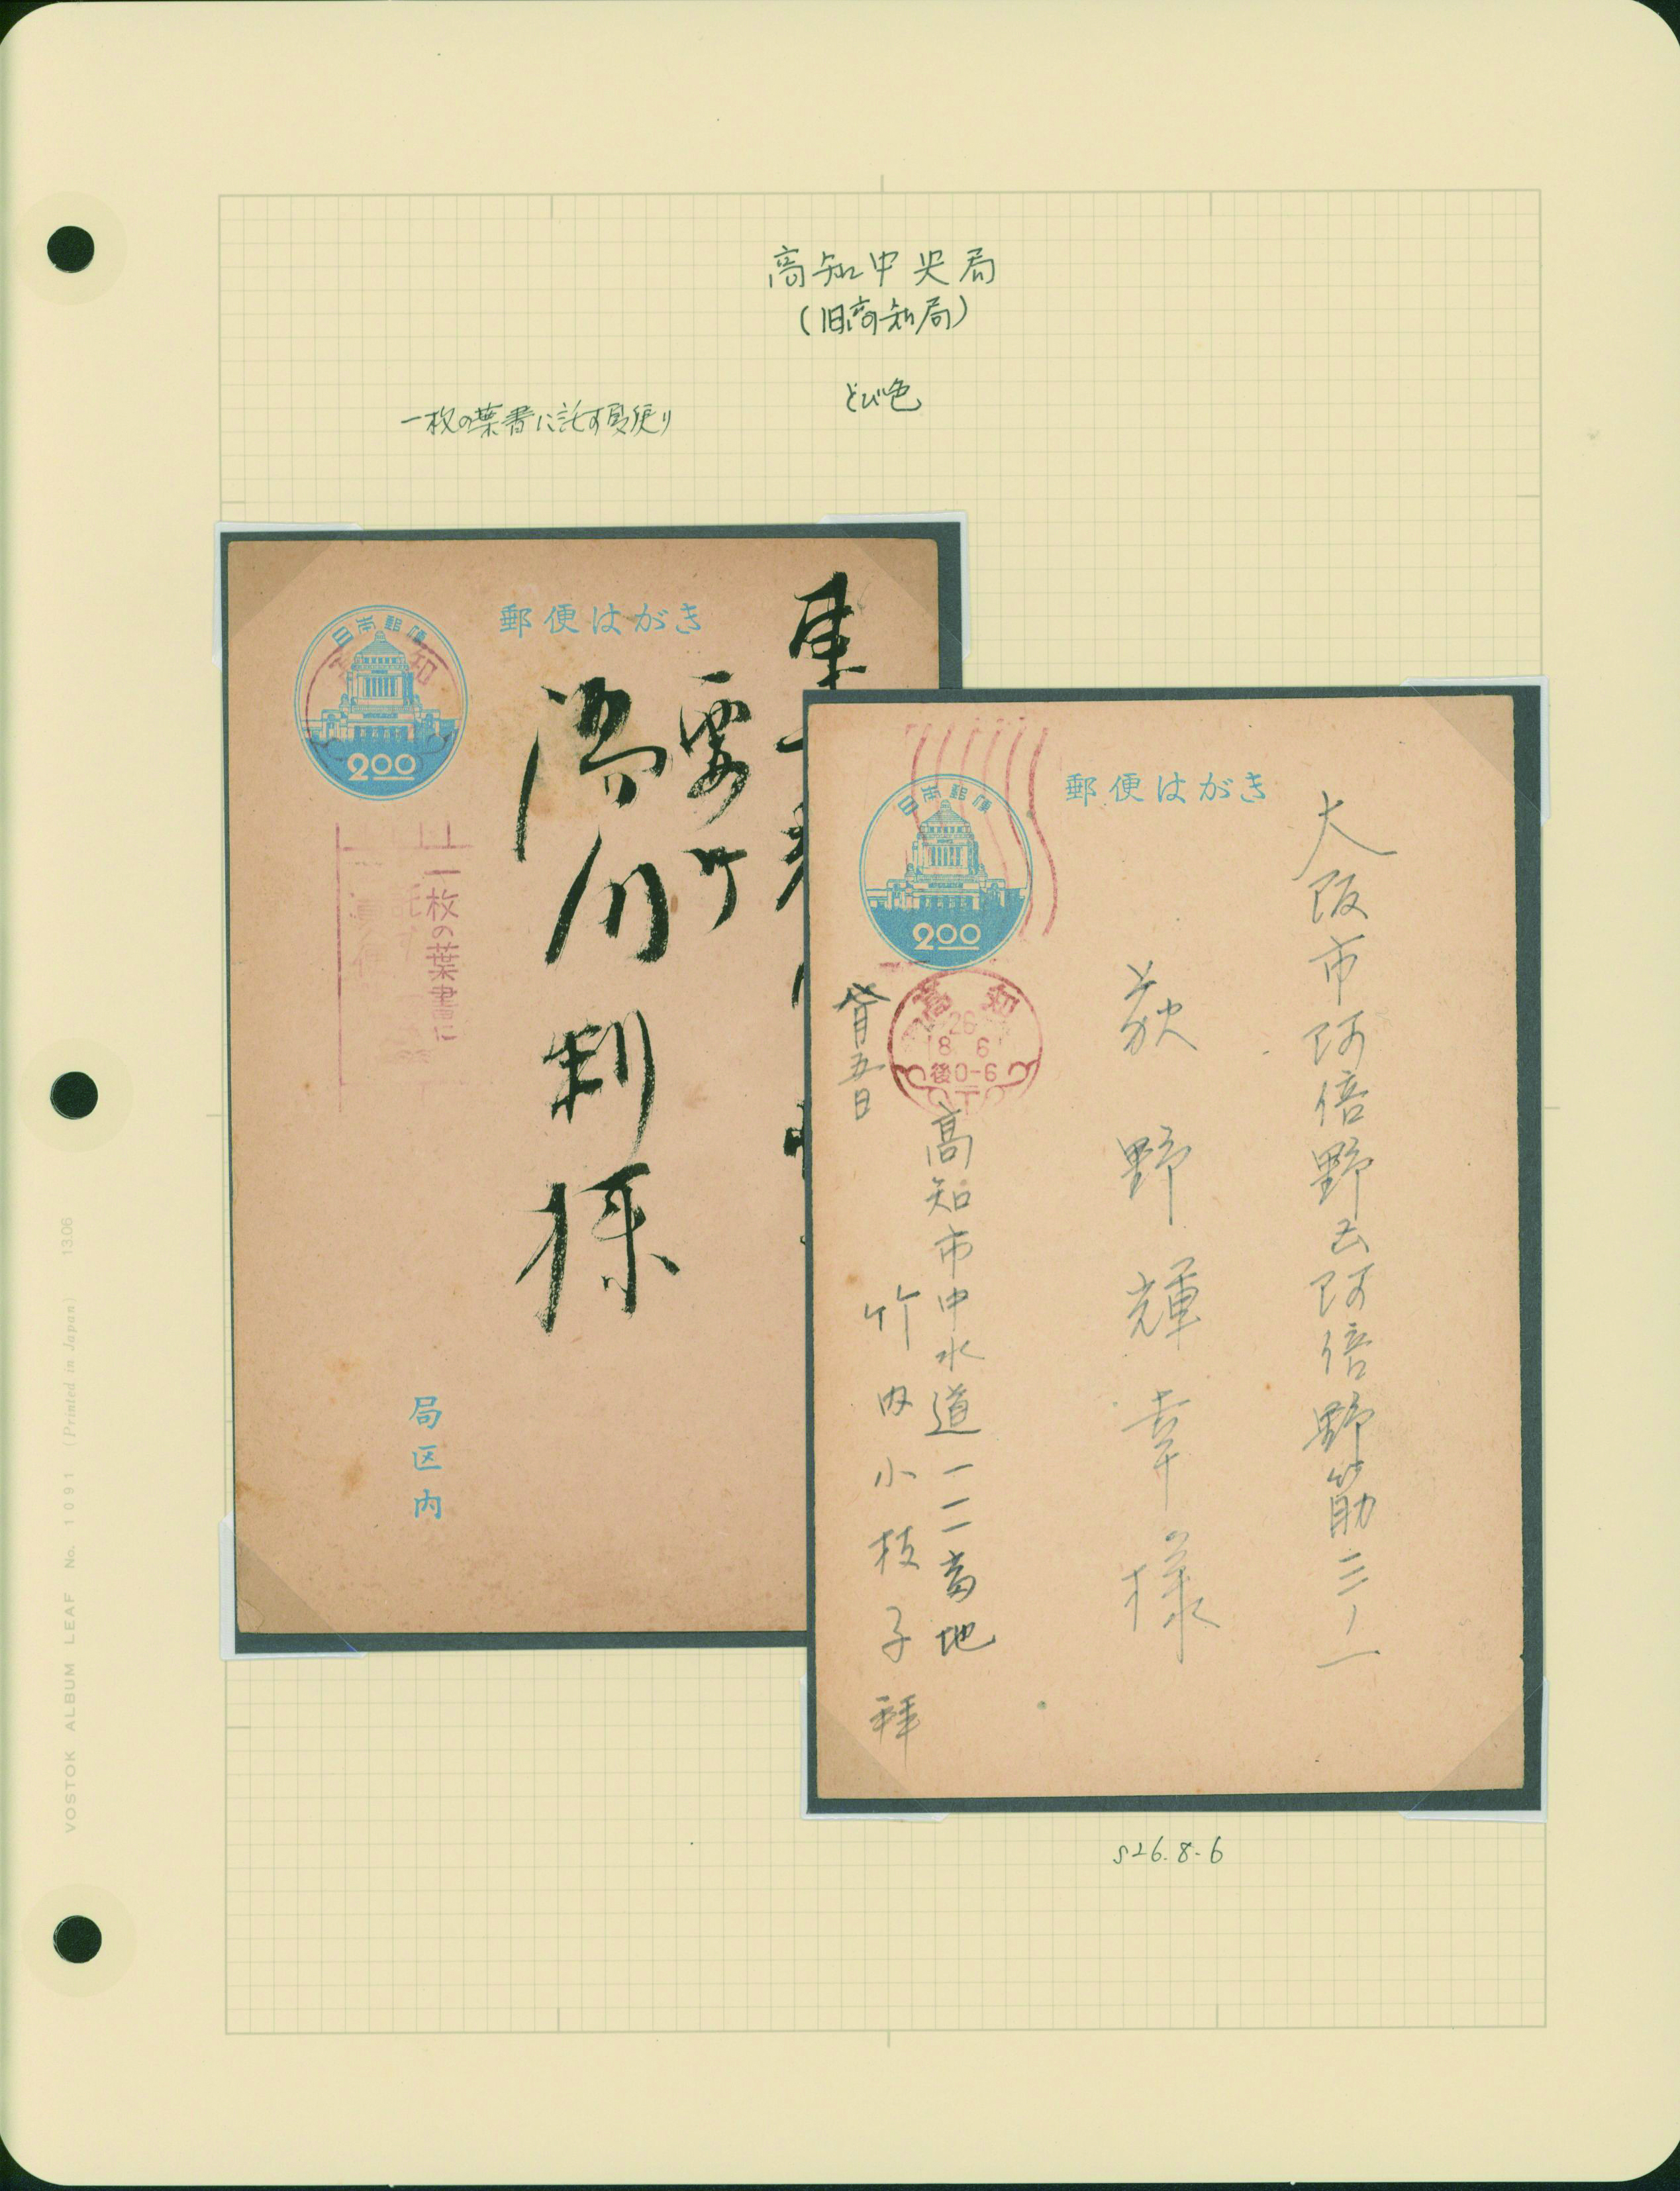 高知中央局
(旧高知局)
とび色
一枚の葉書に託す夏便り
郵便はがき
日本郵便
高知
200
一枚の葉書に
託す
夏便
要町
湯川利様
局区内
郵便はがき
日本郵便
200
高知
26
8 6
後0-6
大阪市阿倍野区阿倍野筋三ノ一
荻野輝幸様
八月五日
高知市中水道一一二番地
竹内小枝子拝
S26.8.6
VOSTOK ALBUM LEAF No. 1091 (Printed in Japan) 13.06